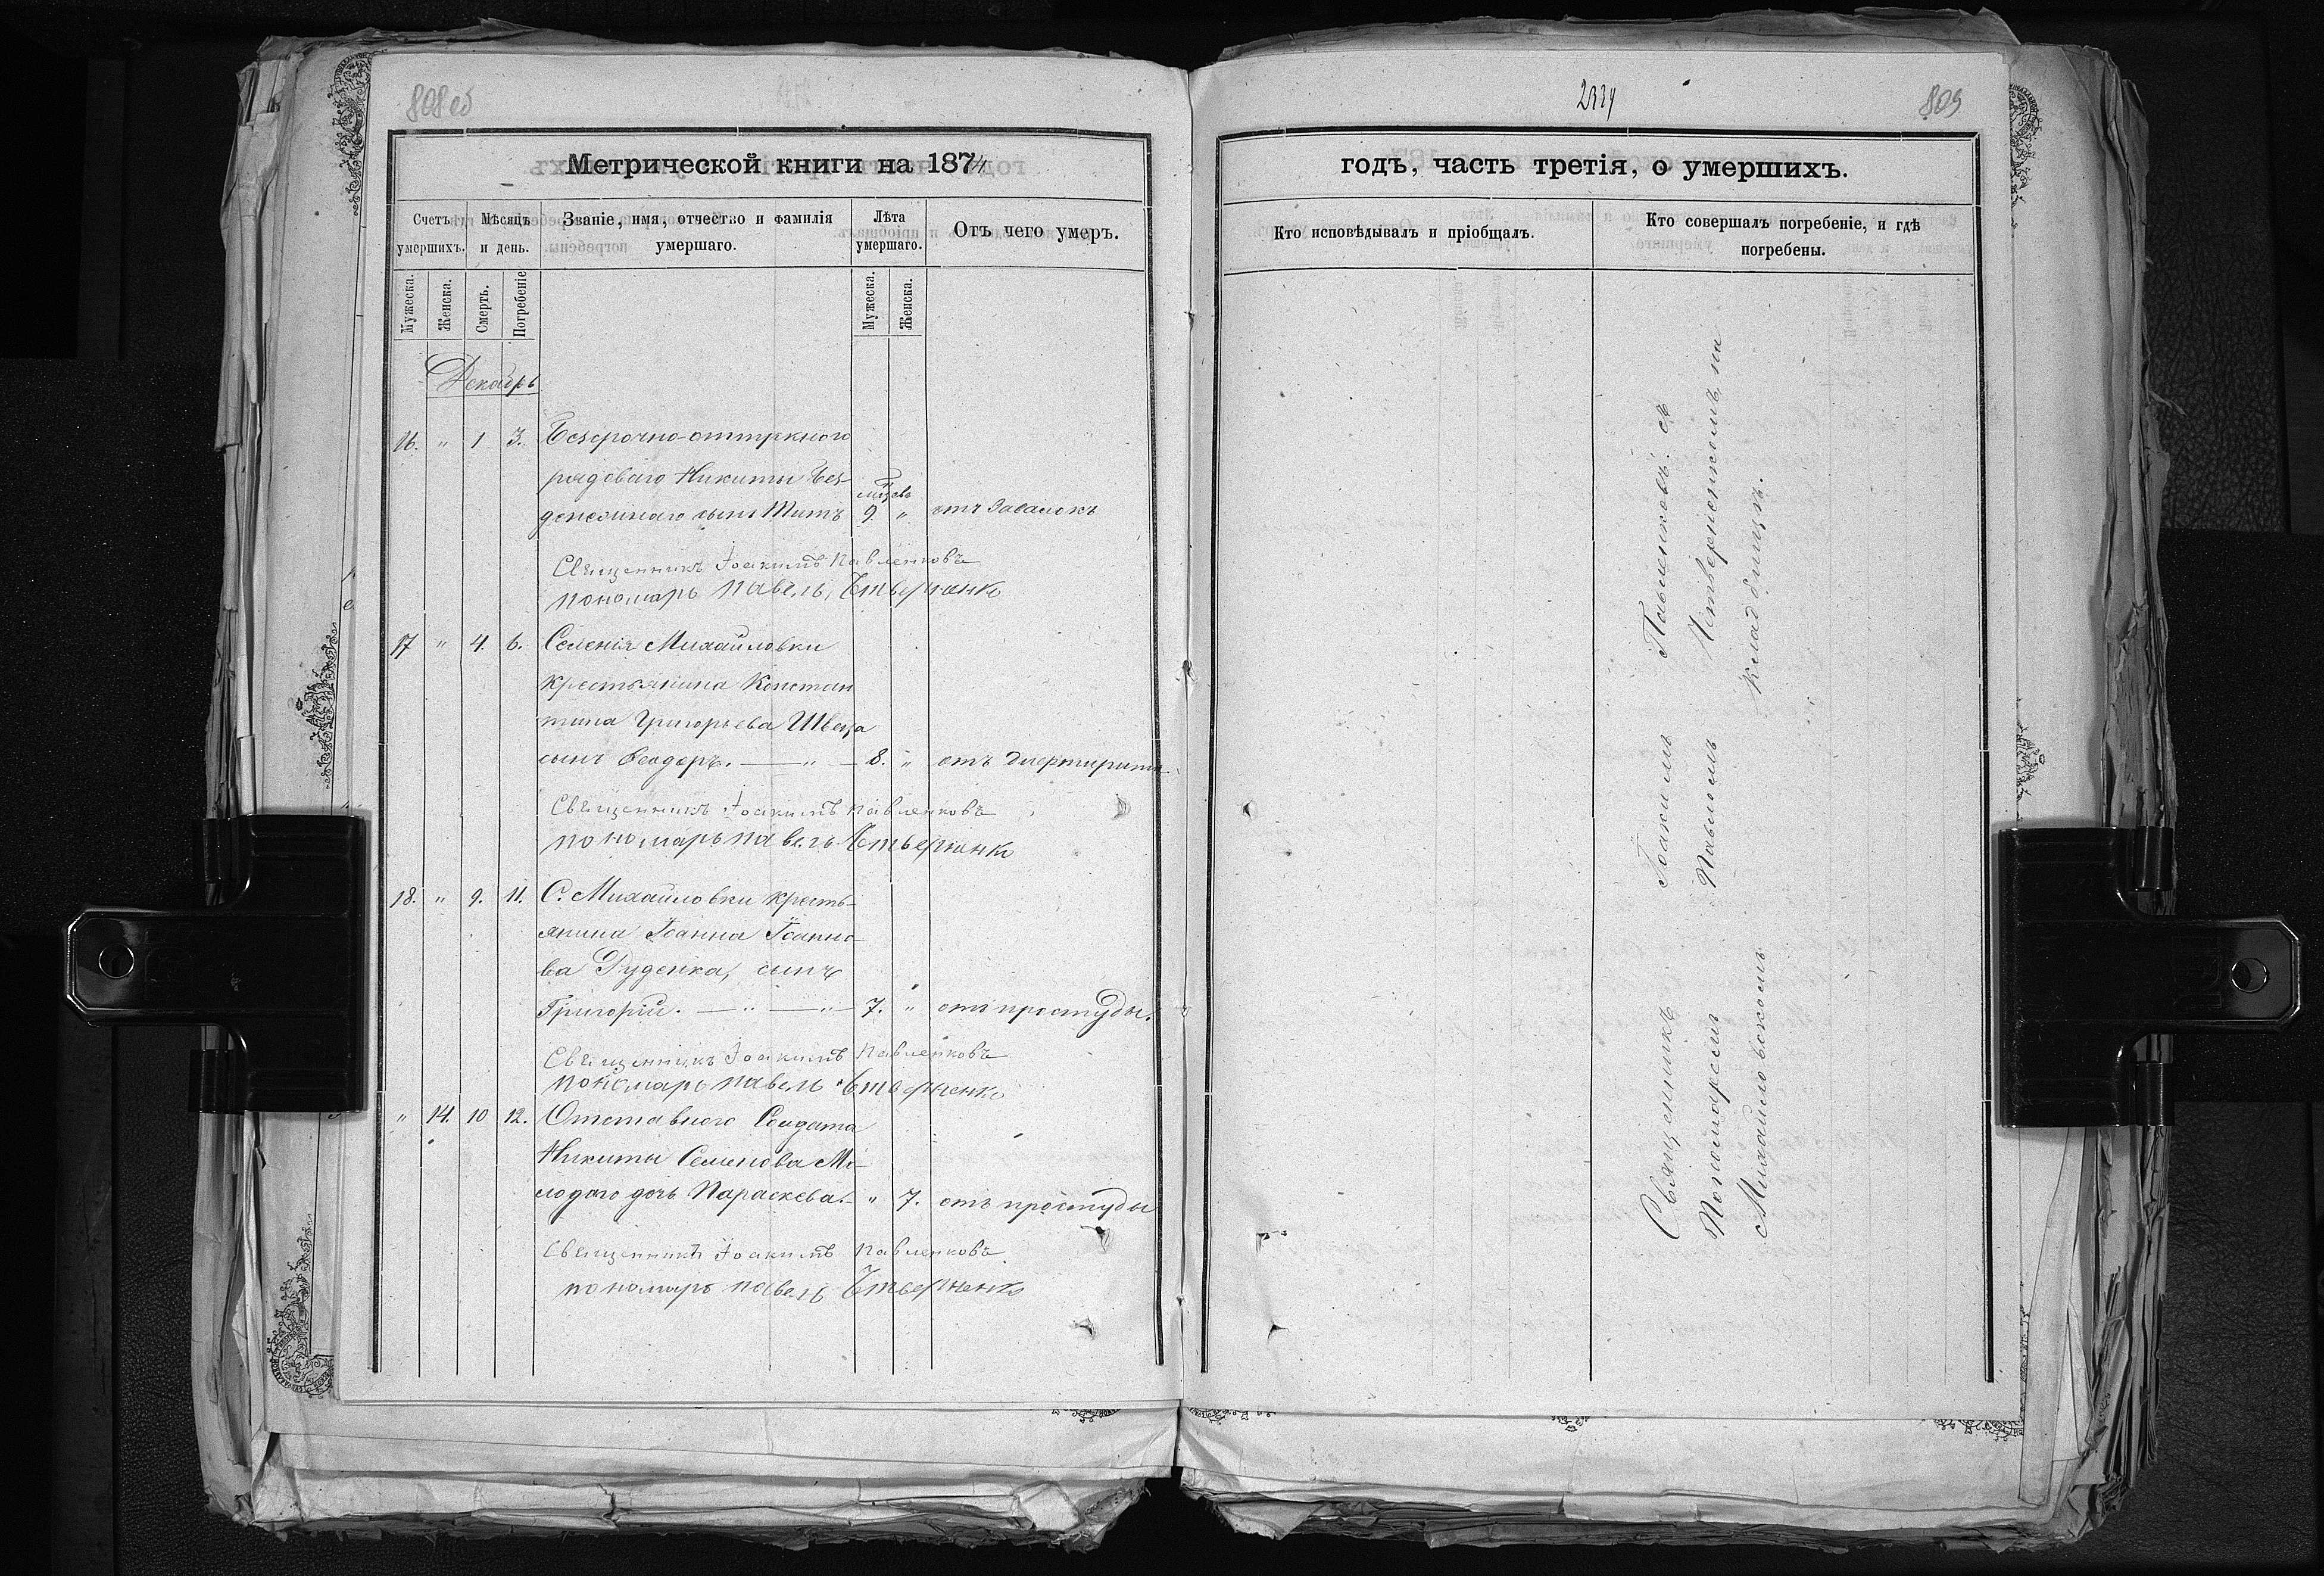 808об
Метрической книги на 1874
Счетъ умершихъ.
Мѣсяцъ и день.
Званіе, имя, отчество и фамилія умершаго.
Лѣта умершаго.
Отъ чего умеръ.
Мужеска.
Женска.
Смерть.
Погребеніе
Мужеска.
Женска.
Декабрь
16. " 1 3. Безсрочно-отпускного
рядоваго Никиты Без-
денежнаго сынъ Титъ 9. " отъ Завалокъ
Священникъ Іоакимъ Павленковъ
пономарь Павелъ Четверненко
17 " 4. 6. Селенія Михайловки
крестьянина Констан
тина Григорьева Швеца
сынъ Ѳеодоръ. — " — 8. " отъ дифтирита
Священникъ Іоакимъ Павленковъ
пономарь Павелъ Четверненко
18. " 9. 11. С. Михайловки кресть-
янина Іоанна Іоанно-
ва Руденка, сынъ
Григорій. — " — " — 7. " отъ простуды.
Священникъ Іоакимъ Павленковъ
пономарь Павелъ Четверненко
" 14. 10 12. Отставного Солдата
Никиты Семенова Мо-
лодого дочь Параскева. — " 7. отъ простуды
Священникъ Іоакимъ Павленковъ
пономарь Павелъ Четверненко
809
годъ, часть третія, о умершихъ.
Кто исповѣдывалъ и пріобщалъ.
Кто совершалъ погребеніе, и гдѣ
погребены.
Священникъ Іоакимъ Павленковъ съ
Пономаремъ Павломъ Четверненкомъ, на
Михайловскомъ кладбищѣ.